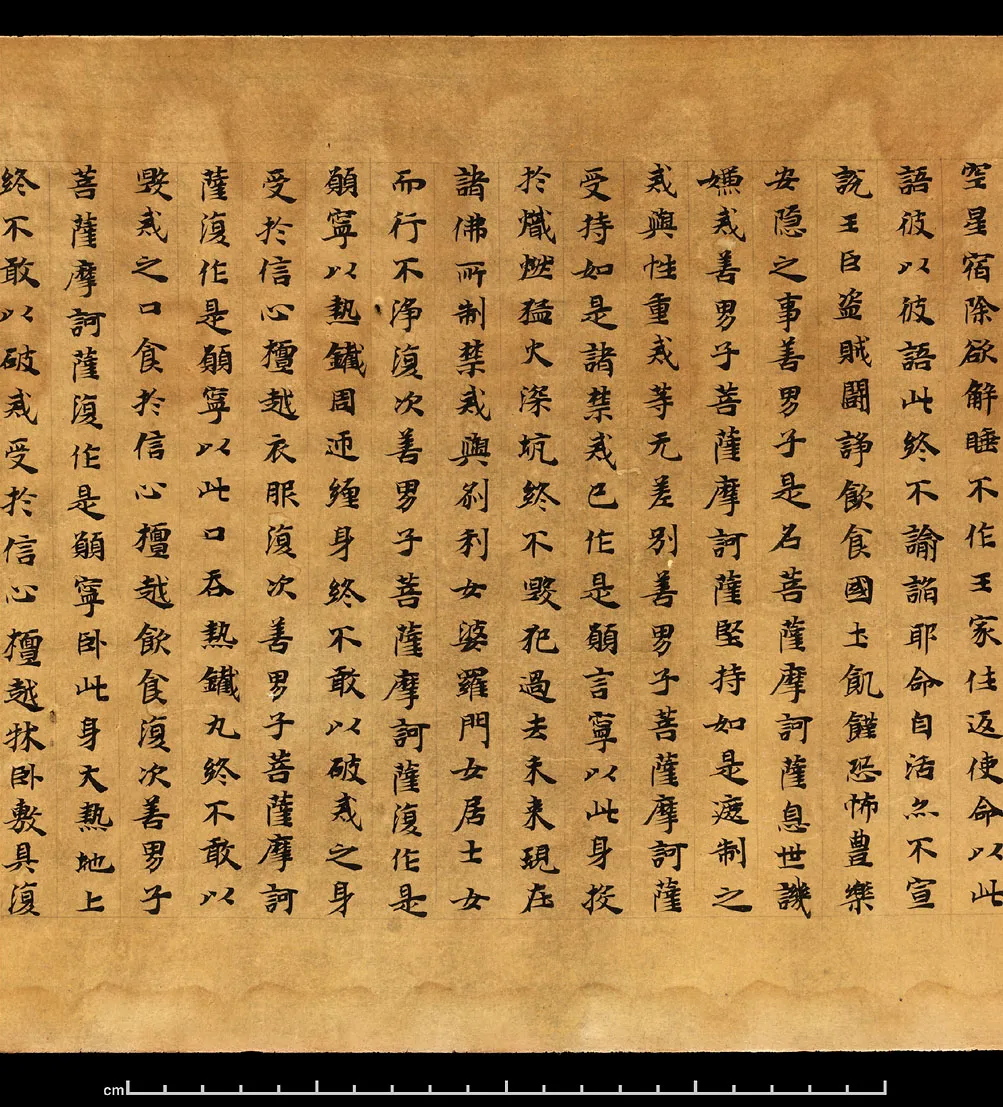 空星宿除欲解睡不作王家往返使命以此
語彼以彼語此終不諭諂耶命自活亦不宣
說王臣盜賊鬪諍飲食國土飢饉恐怖豊樂
安隠之事善男子是名菩薩摩訶薩息世譏
嫌戒善男子菩薩摩訶薩堅持如是遮制之
戒與性重戒等无差別善男子菩薩摩訶薩
受持如是諸禁戒已作是願言寧以此身投
於熾燃猛火深坑終不毀犯過去未来現在
諸佛所制禁戒與刹利女婆羅門女居士女
而行不淨復次善男子菩薩摩訶薩復作是
願寧以熱鐵周迊纏身終不敢以破戒之身
受於信心檀越衣服復次善男子菩薩摩訶
薩復作是願寧以此口吞熱鐵丸終不敢以
毀戒之口食於信心檀越飲食復次善男子
菩薩摩訶薩復作是願寧卧此身大熱地上
終不敢以破戒受於信心檀越牀卧敷具復
cm